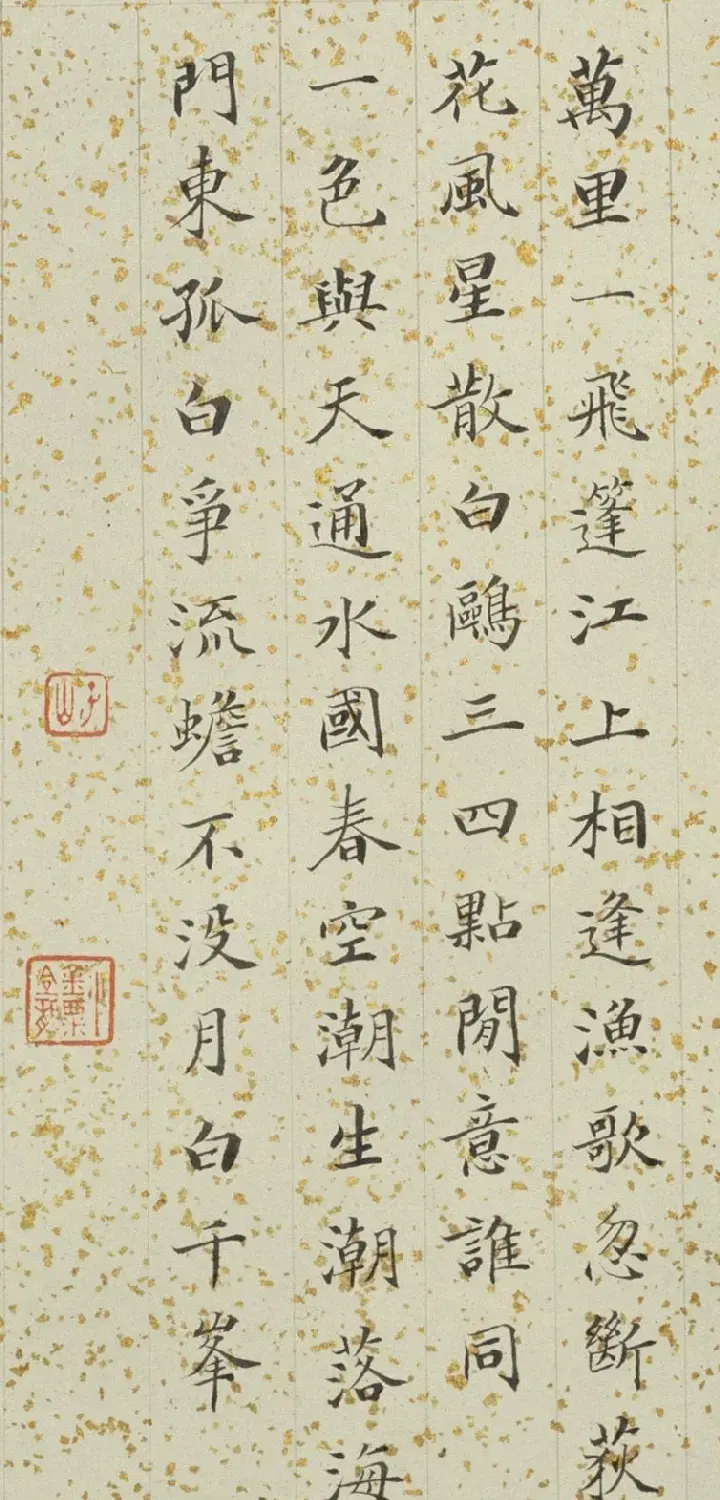 萬里一飛篷江上相逢漁歌忽斷荻
花風星散白鷗三四點閒意誰同
一色與天通水國春空潮生潮落海
門東孤白爭流蟾不没月白千峯
子山